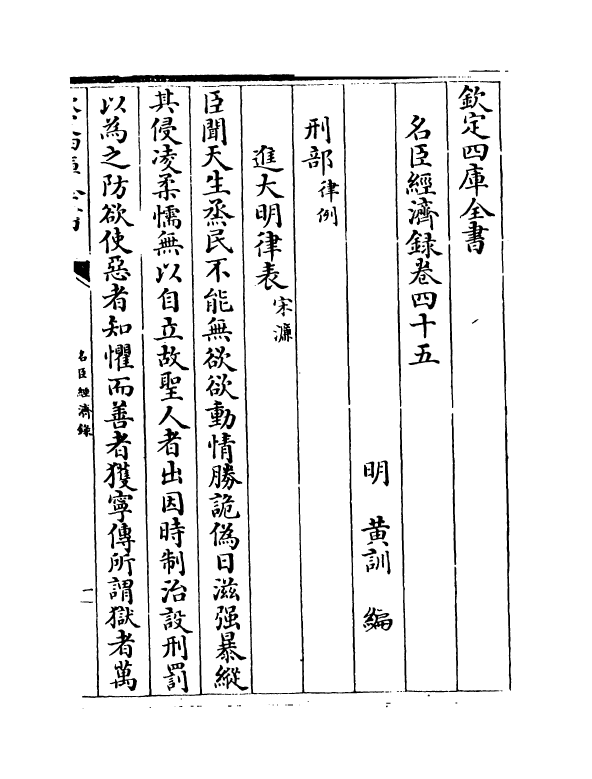 欽定四庫全書
名臣經濟録卷四十五
明 黄訓 編
刑部律例
進大明律表宋濂
臣聞天生烝民不能無欲欲動情勝詭偽日滋强暴縱
其侵凌柔懦無以自立故聖人者出因時制治設刑罰
以為之防欲使惡者知懼而善者獲寧傳所謂獄者萬
名臣經濟録
一